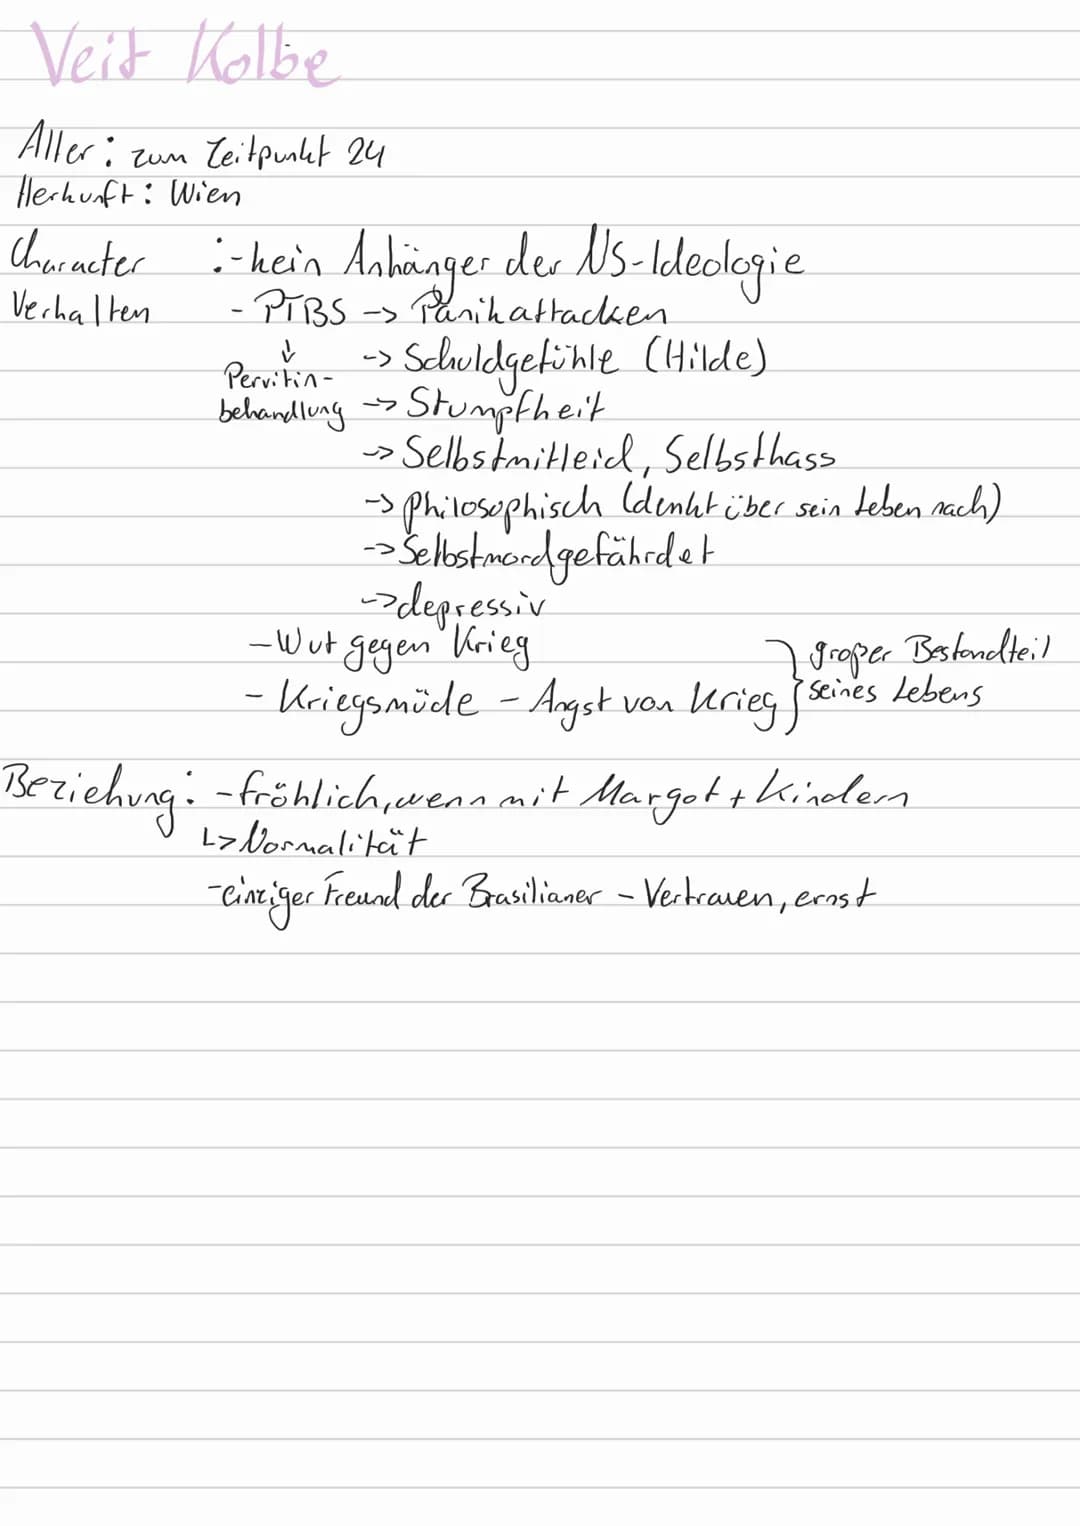 Veit Kolbe
Alter: zum Zeitpunkt 24
Herkunft: Wien
Character :-kein Anhänger der NS-Ideologie
Verhalten - PTBS -> Panikattacken
↓ -> Schuldgefühle (Hilde)
Pervitin-
behandlung -> Stumpfheit
-> Selbstmitleid, Selbsthass
-> philosophisch (denkt über sein Leben nach)
-> Selbstmordgefährdet
-> depressiv
- Wut gegen Krieg } großer Bestandteil
- Kriegsmüde - Angst von Krieg } seines Lebens
Beziehung: - fröhlich, wenn mit Margot + Kindern
↳ Normalität
- einziger Freund der Brasilianer - Vertrauen, ernst